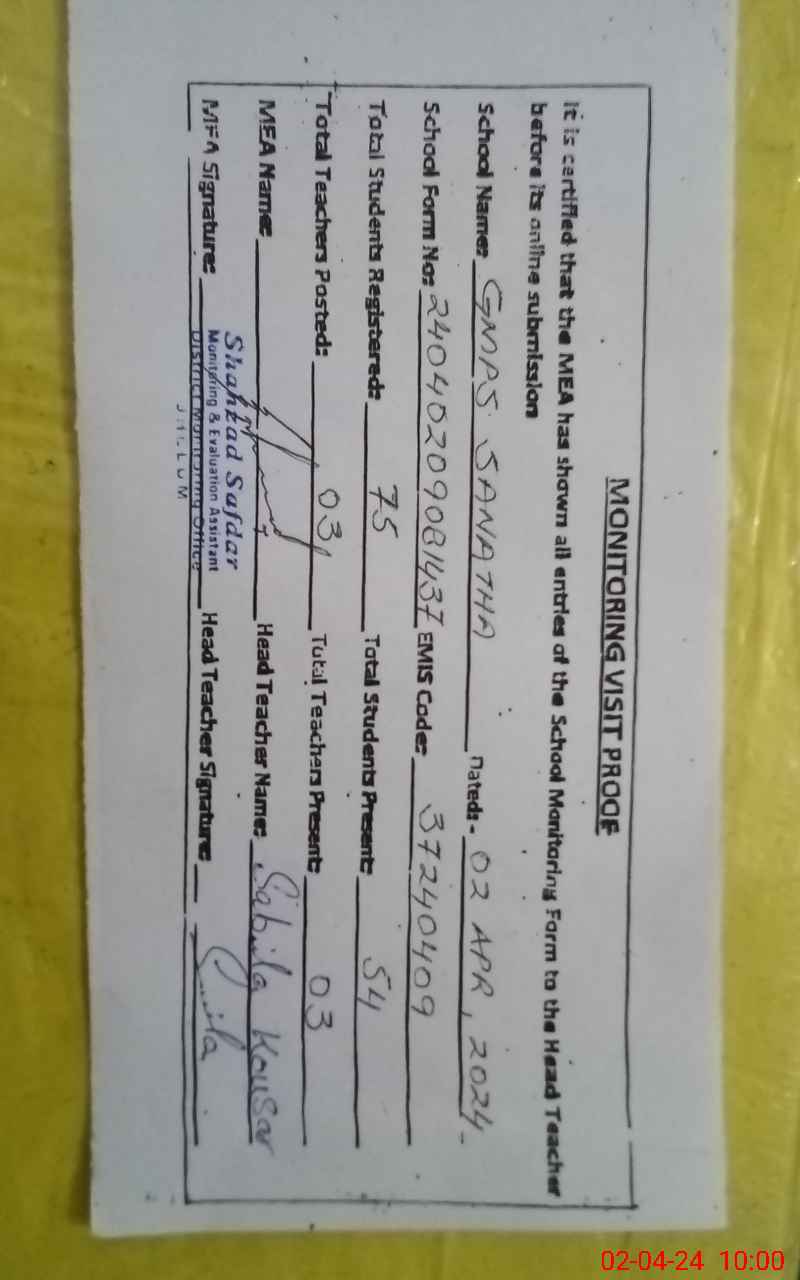 MONITORING VISIT PROOF
It is certified that the MEA has shown all entries of the School Monitoring Form to the Head Teacher
before its online submission
School Name: GMPS SANATHA Dated:- 02 APR, 2024-
School Form No: 24040209081437 EMIS Code: 37240409
Total Students Registered: 75 Total Students Present: 54
Total Teachers Posted: 03 Total Teachers Present: 03
MEA Name: Head Teacher Name: Sabila Kousar
Shahzad Safdar
Monitoring & Evaluation Assistant
MEA Signature: District Monitoring Office Head Teacher Signature:
JHELUM
02-04-24 10:00